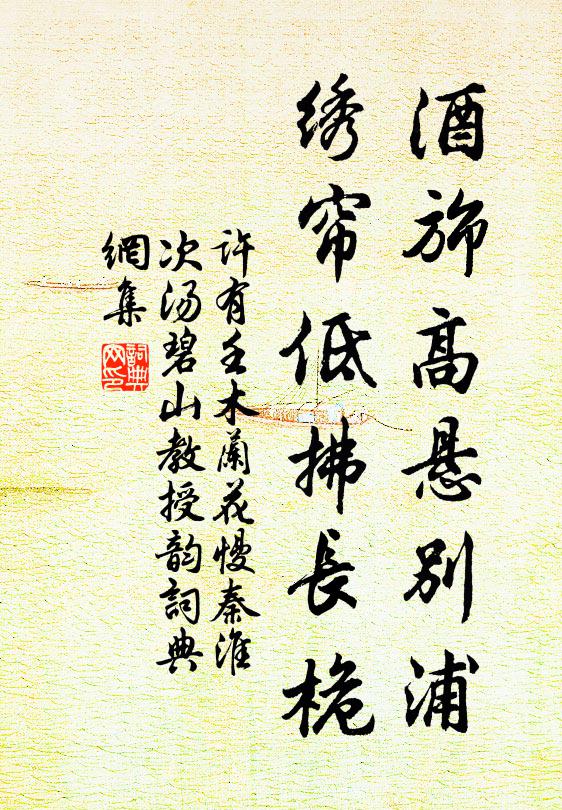 酒旆高悬别浦
绣帘低拂长桅
许有壬木蘭花慢秦淮
次汤碧山教授韵詞典
網集
詞典
网印